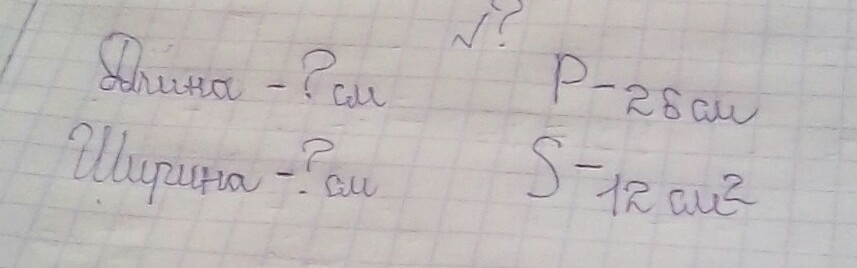 √?
Длина - ? см P - 26 см
Ширина - ? см S - 12 см²